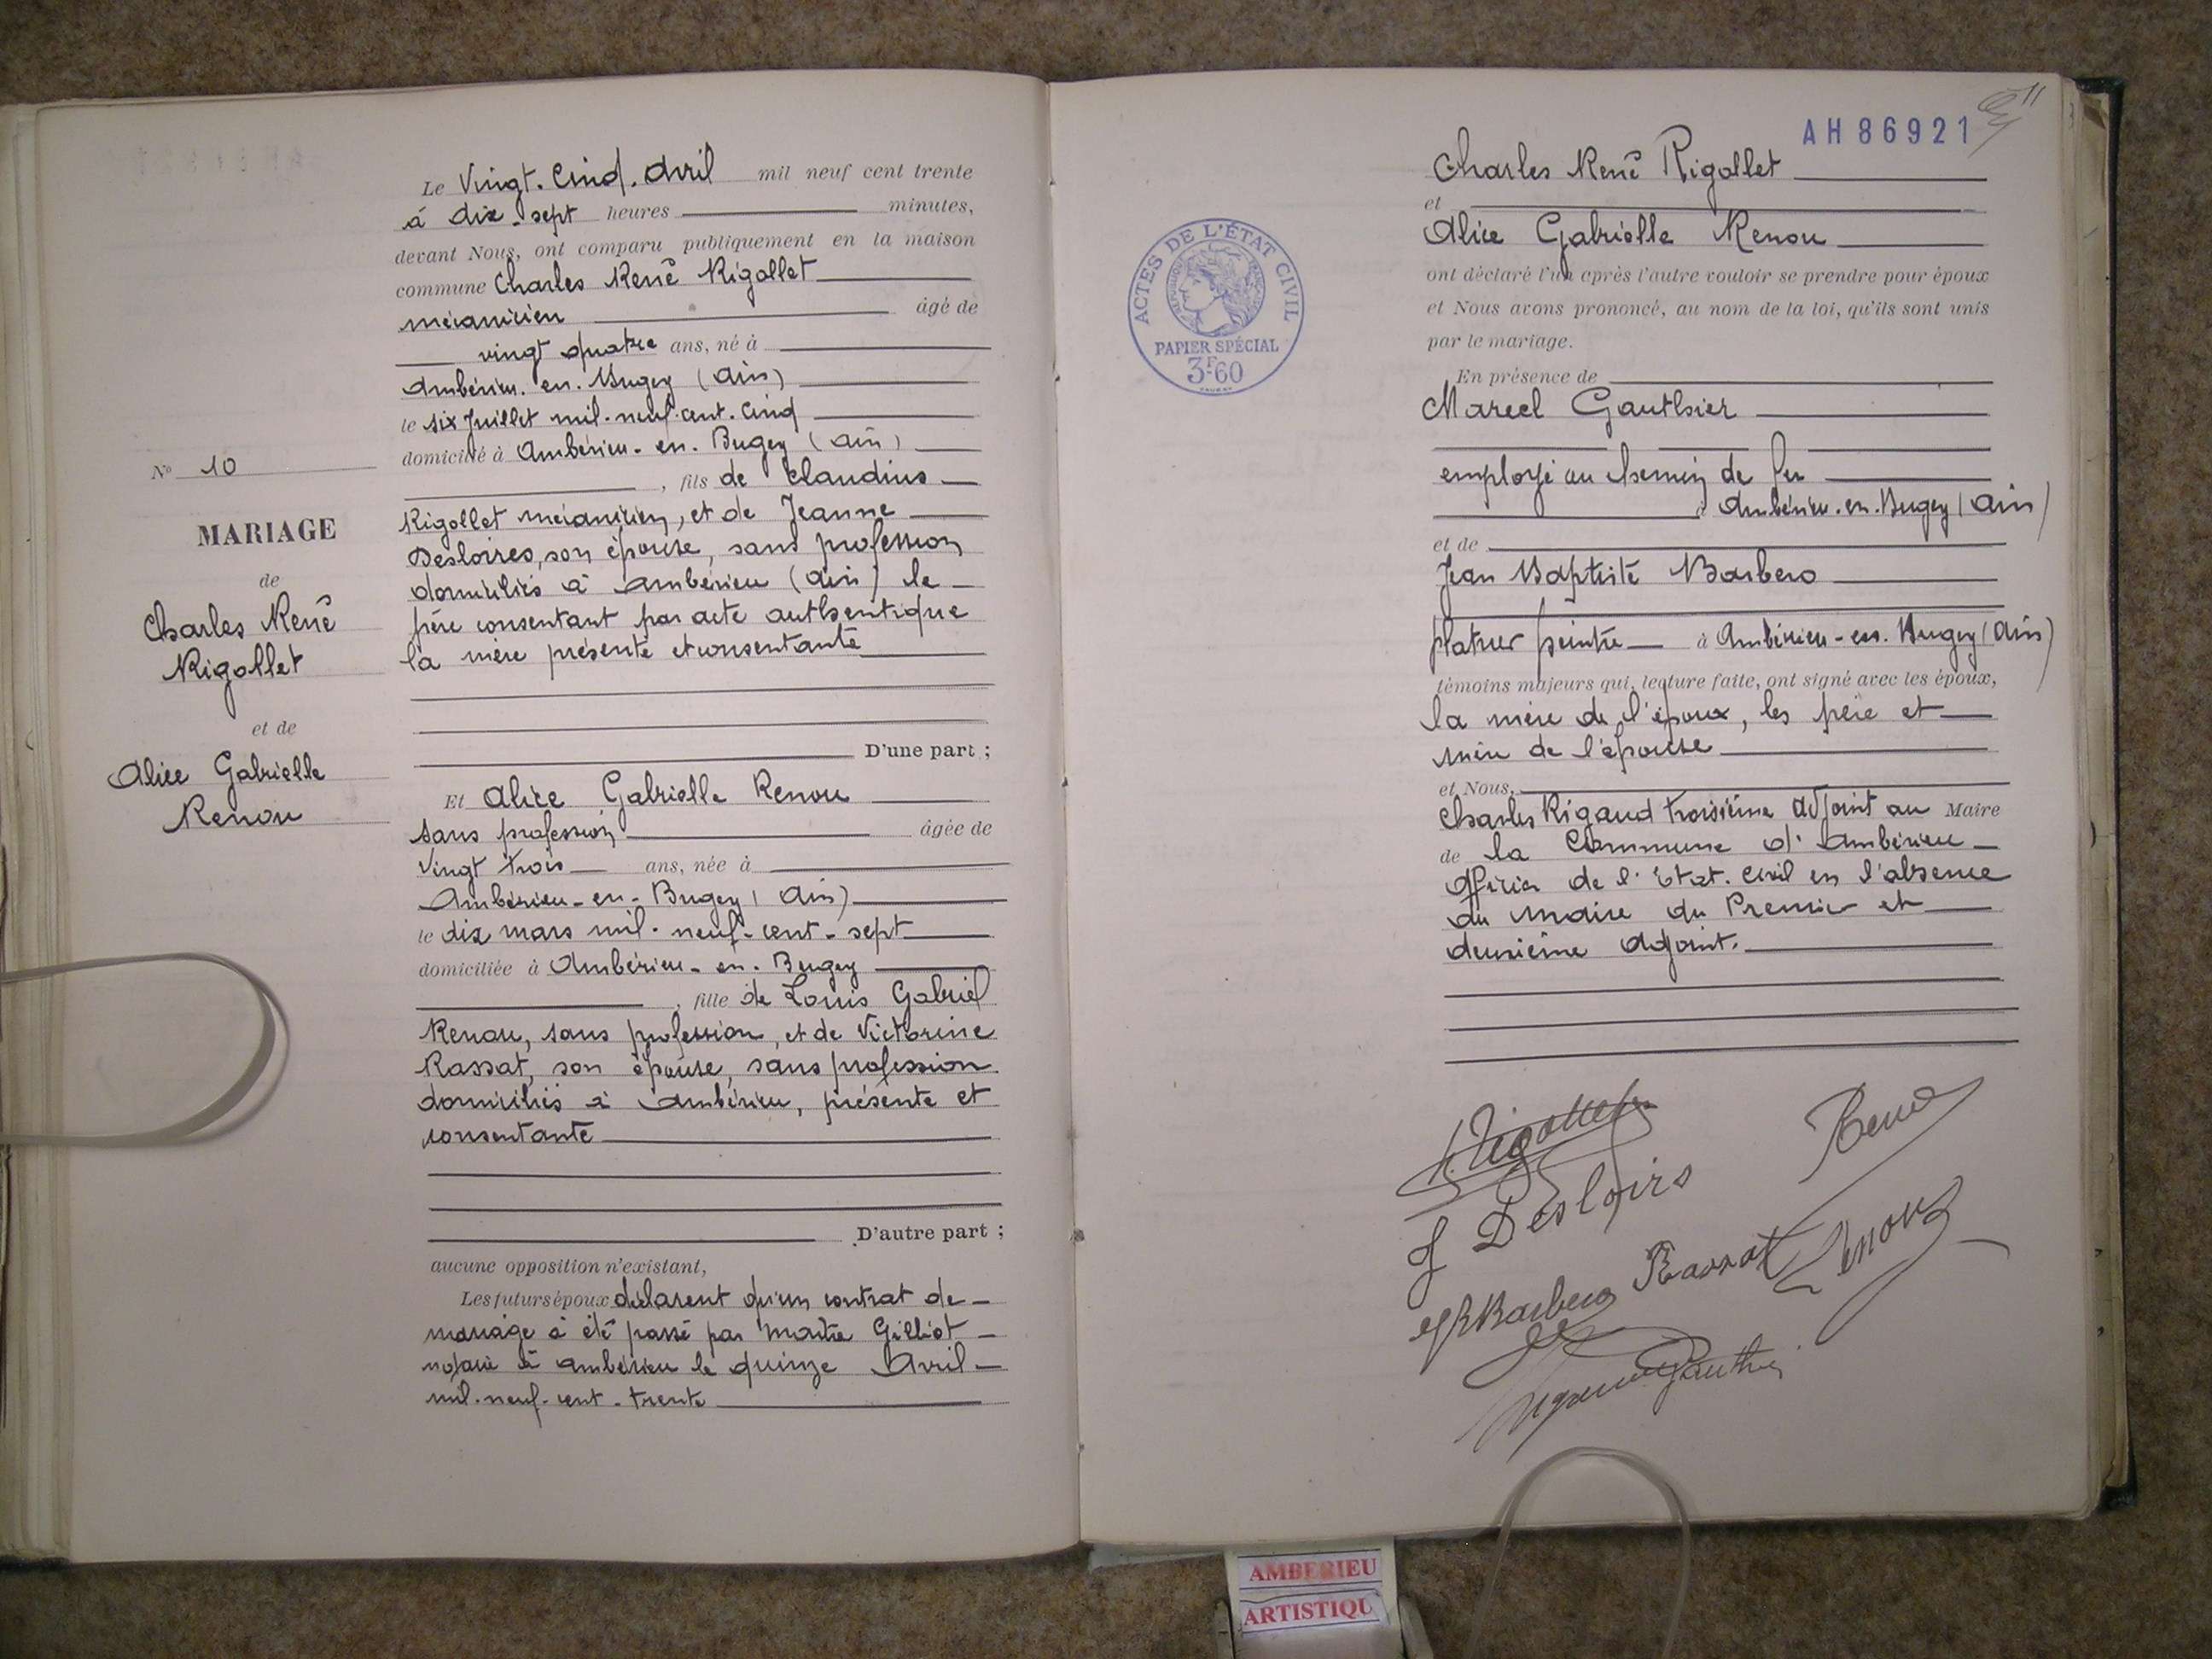 N° 10
MARIAGE
de
Charles René
Rigollet
et de
Alice Gabrielle
Renou
Le Vingt. Cinq. Avril mil neuf cent trente
à dix-sept heures minutes,
devant Nous, ont comparu publiquement en la maison
commune Charles René Rigollet
mécanicien âgé de
vingt quatre ans, né à
Ambérieu. en. Bugey (Ain)
le six Juillet mil-neuf-cent. cinq
domicilié à Ambérieu-en. Bugey (Ain)
, fils de Claudius
Rigollet mécanicien, et de Jeanne
Desloires, son épouse, sans profession
domiciliés à Ambérieu (Ain) le
père consentant par acte authentique
la mère présente et consentante
D'une part ;
Et Alice Gabrielle Renou
sans profession âgée de
Vingt trois ans, née à
Ambérieu-en-Bugey (Ain)
le dix mars mil-neuf-cent-sept
domiciliée à Ambérieu-en-Bugey
, fille de Louis Gabriel
Renou, sans profession, et de Victorine
Rassat, son épouse, sans profession
domiciliés à Ambérieu, présente et
consentante
D'autre part ;
aucune opposition n'existant,
Les futurs époux déclarent qu'un contrat de
mariage a été passé par Maître Gilliot
notaire à Ambérieu le quinze Avril
mil-neuf-cent-trente
AH 86921
11
ACTES DE L'ÉTAT CIVIL
RÉPUBLIQUE FRANÇAISE
PAPIER SPÉCIAL
3F60
Charles René Rigollet
et
Alice Gabrielle Renou
ont déclaré l'un après l'autre vouloir se prendre pour époux
et Nous avons prononcé, au nom de la loi, qu'ils sont unis
par le mariage.
En présence de
Marcel Gauthier
employé au chemin de fer
à Ambérieu-en-Bugey (Ain)
et de
Jean Baptiste Barbero
platrier peintre à Ambérieu-en-Bugey (Ain)
témoins majeurs qui, lecture faite, ont signé avec les époux,
la mère de l'époux, les père et
mère de l'épouse
et Nous,
Charles Rigaud troisième Adjoint au Maire
de la Commune d'Ambérieu
Officier de l'Etat. Civil en l'absence
du Maire du Premier et
deuxième Adjoint.
Rigollet
Renou
J Desloirs
Barbero Rassat Renou
Gauthier
AMBERIEU
ARTISTIQU